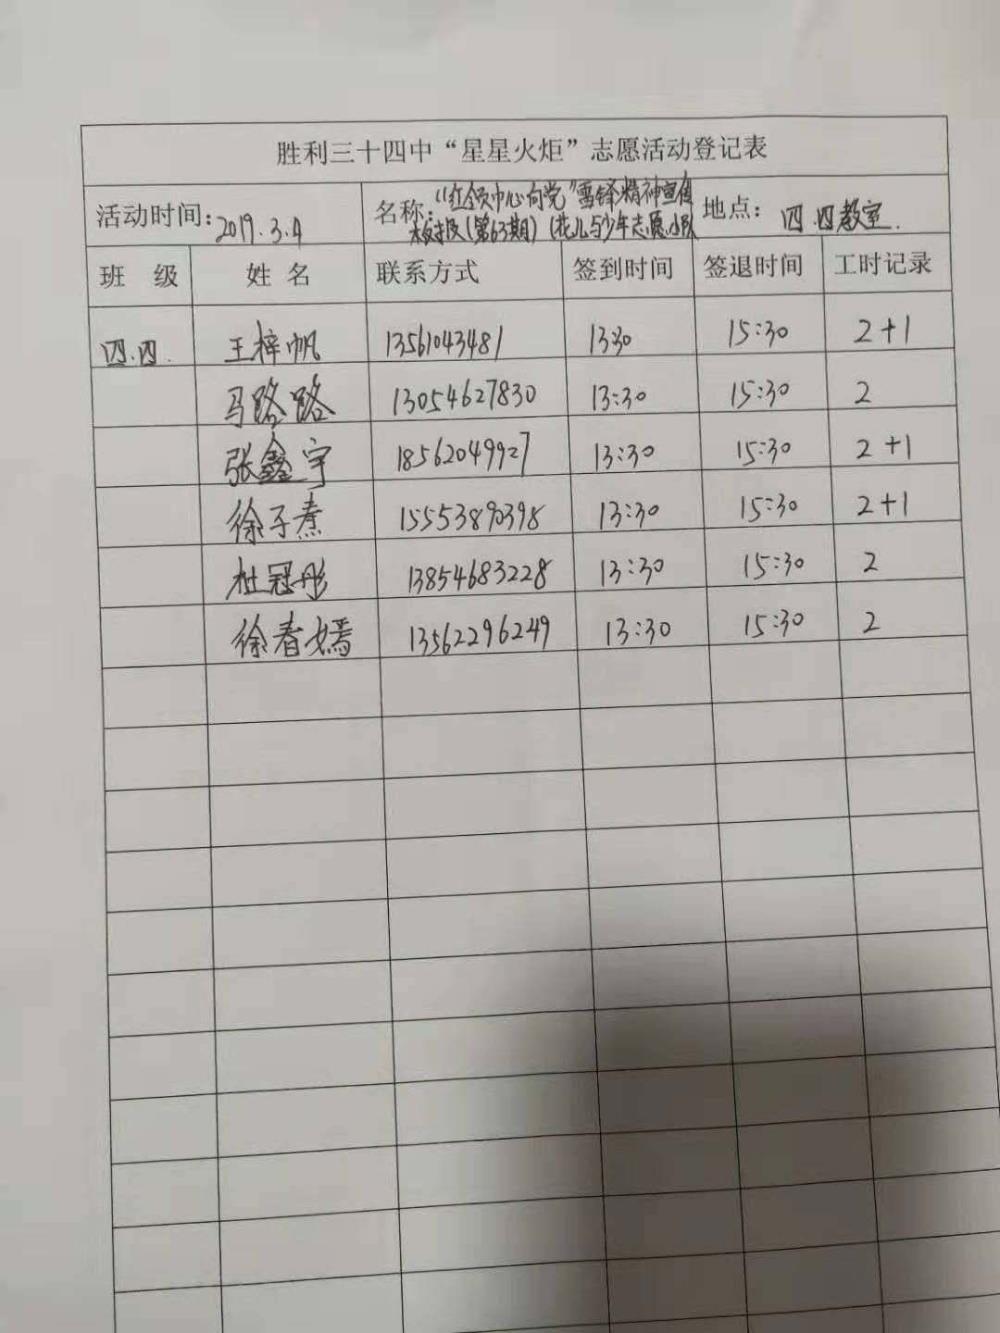 胜利三十四中“星星火炬”志愿活动登记表
活动时间：2019.3.4 名称：“红领巾心向党”雷锋精神宣传
板报(第63期)(花儿与少年志愿小队 地点： 四.四教室.
班 级 姓 名 联系方式 签到时间 签退时间 工时记录
四.四. 王梓帆 13561043481 13:30 15:30 2+1
马路路 13054627830 13:30 15:30 2
张鑫宇 18562049927 13:30 15:30 2+1
徐子熹 15553890398 13:30 15:30 2+1
杜冠彤 13854683228 13:30 15:30 2
徐春嫣 13562296249 13:30 15:30 2